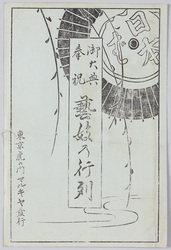 日本
御大典
奉祝
藝妓の行列
東京虎の門マルキヤ發行